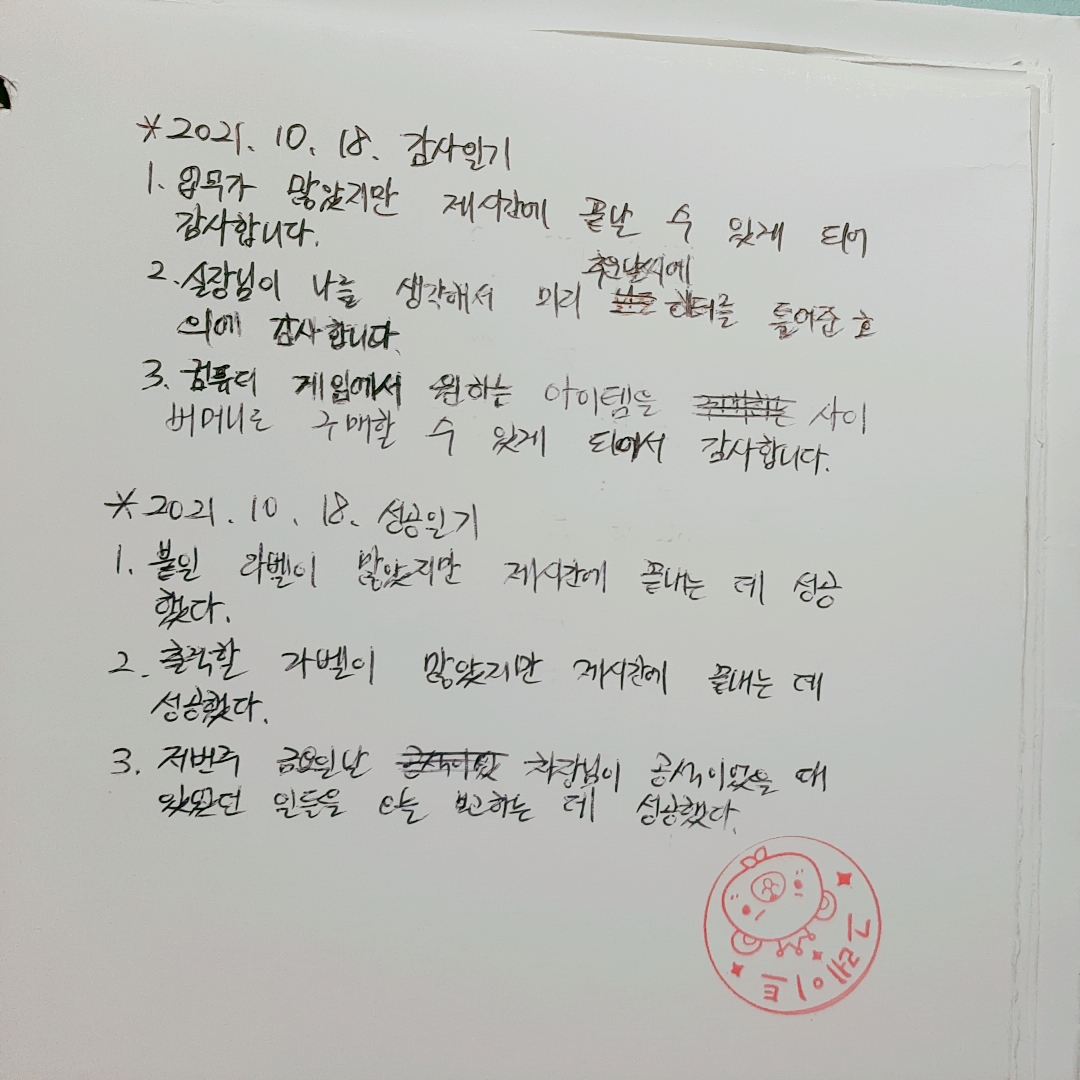 *2021. 10. 18. 감사일기
1. 업무가 많았지만 제시간에 끝날 수 있게 되어
감사합니다.
추운날씨에
2. 실장님이 나를 생각해서 미리 히터를 틀어준 호
의에 감사합니다.
3. 컴퓨터 게임에서 원하는 아이템을 사이
버머니로 구매할 수 있게 되어서 감사합니다.
*2021. 10. 18. 성공일기
1. 붙일 라벨이 많았지만 제시간에 끝내는 데 성공
했다.
2. 출력할 라벨이 많았지만 제시간에 끝내는 데
성공했다.
3. 저번주 금요일날 차장님이 공석이었을 때
있었던 일들을 오늘 보고하는 데 성공했다.
그레이트